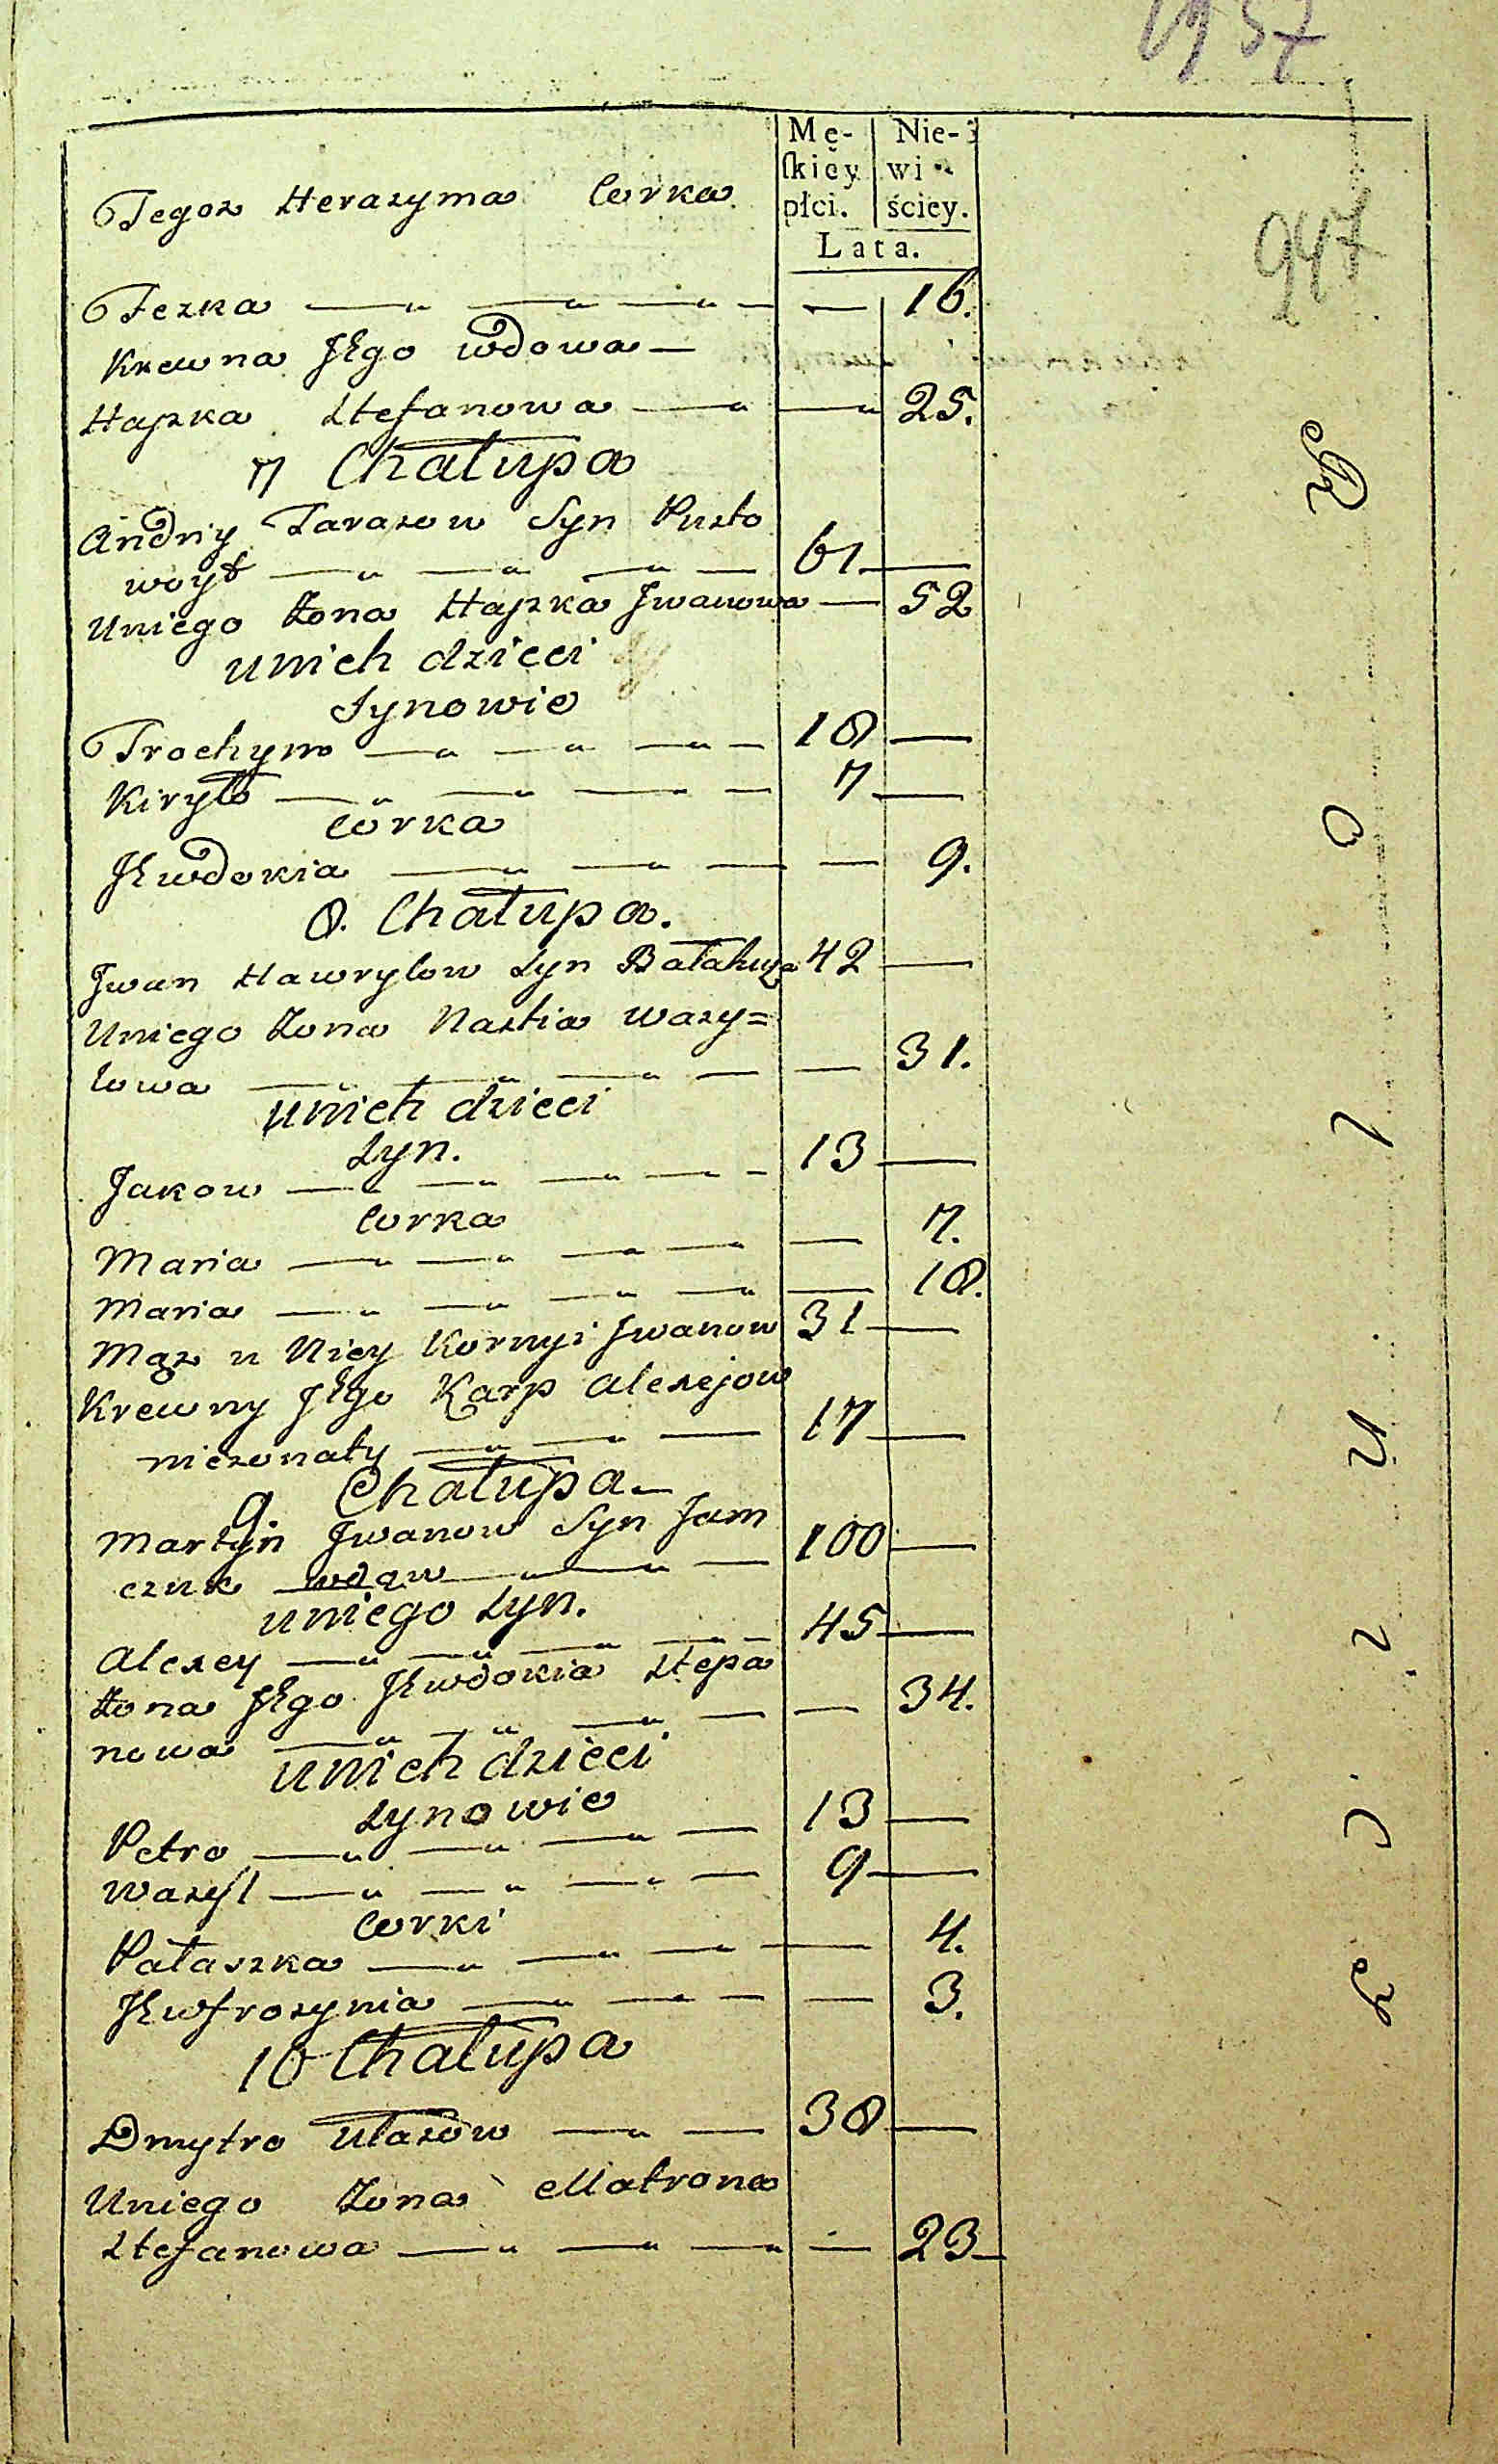 1957
947
Mę- Nie-
skiey wi
płci. ściey.
Lata.
Tegoz Herazyma Corka
Tezka — — — — — 16.
Krewna Jego wdowa —
Hapka Stefanowa — — 25.
7 Chałupa
Andriy Tarasow Syn Pusto
woyt — — — — 61 —
Uniego Zona Hapka Jwanowa — 52
unich dzieci
Synowie
Trochym — — — — 18 —
Kiryło — — — — 7 —
Corka
Jewdokia — — — — 9.
8. Chałupa.
Jwan Hawrylow Syn Bałahuza 42 —
Uniego Zona Nastia Wasy=
lowa — — — — — 31.
unich dzieci
Syn.
Jakow — — — — — 13 —
Corka
Maria — — — — — 7.
Maria — — — — — 18.
Mąz u Niey Kornyi Jwanow 31 —
Krewny Jego Karp Alexejow
niezonaty — — — 17 —
9. Chałupa —
Martyn Jwanow Syn Jam
czuk wdow — — 100 —
uniego Syn.
Alexey — — — — — 45 —
Zona Jego Jewdokia Stepa
nowa — — — — — 34.
unich dzieci
Synowie
Petro — — — — 13 —
Wasyl — — — — 9 —
Corki
Pałaszka — — — — 4.
Jewfrozynia — — — — 3.
10 Chałupa
Dmytro Ułasow — — 38 —
Uniego Zona Matrona
Stefanowa — — — — 23 —